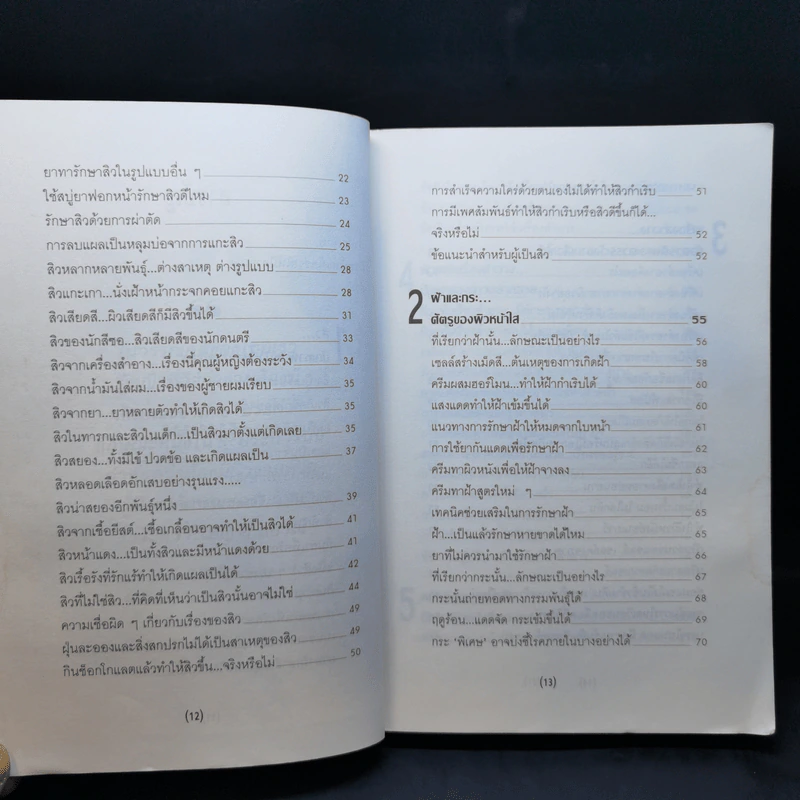 ยาทารักษาสิวในรูปแบบอื่น ๆ 22
ใช้สบู่ยาฟอกหน้ารักษาสิวดีไหม 23
รักษาสิวด้วยการผ่าตัด 24
การลบแผลเป็นหลุมบ่อจากการแกะสิว 25
สิวหลากหลายพันธุ์...ต่างสาเหตุ ต่างรูปแบบ 28
สิวแกะเกา...นั่งเฝ้าหน้ากระจกคอยแกะสิว 28
สิวเสียดสี...ผิวเสียดสีก็มีสิวขึ้นได้ 31
สิวของนักสีซอ...สิวเสียดสีของนักดนตรี 33
สิวจากเครื่องสำอาง...เรื่องนี้คุณผู้หญิงต้องระวัง 34
สิวจากน้ำมันใส่ผม...เรื่องของผู้ชายผมเรียบ 35
สิวจากยา...ยาหลายตัวทำให้เกิดสิวได้ 35
สิวในทารกและสิวในเด็ก...เป็นสิวมาตั้งแต่เกิดเลย 35
สิวสยอง...ทั้งมีไข้ ปวดข้อ และเกิดแผลเป็น 37
สิวหลอดเลือดอักเสบอย่างรุนแรง.....
สิวน่าสยองอีกพันธุ์หนึ่ง 39
สิวจากเชื้อยีสต์...เชื้อเกลื้อนอาจทำให้เป็นสิวได้ 41
สิวหน้าแดง...เป็นทั้งสิวและมีหน้าแดงด้วย 41
สิวเรื้อรังที่รักแร้ทำให้เกิดแผลเป็นได้ 42
สิวที่ไม่ใช่สิว...ที่คิดที่เห็นว่าเป็นสิวนั้นอาจไม่ใช่ 44
ความเชื่อผิด ๆ เกี่ยวกับเรื่องของสิว 49
ฝุ่นละอองและสิ่งสกปรกไม่ได้เป็นสาเหตุของสิว 49
กินช็อกโกแลตแล้วทำให้สิวขึ้น...จริงหรือไม่ 50
(12)
การสำเร็จความใคร่ด้วยตนเองไม่ได้ทำให้สิวกำเริบ 51
การมีเพศสัมพันธ์ทำให้สิวกำเริบหรือสิวดีขึ้นก็ได้...
จริงหรือไม่ 52
ข้อแนะนำสำหรับผู้เป็นสิว 52
2 ฝ้าและกระ...
ศัตรูของผิวหน้าใส 55
ที่เรียกว่าฝ้านั้น...ลักษณะเป็นอย่างไร 56
เซลล์สร้างเม็ดสี...ต้นเหตุของการเกิดฝ้า 58
ครีมผสมฮอร์โมน...ทำให้ฝ้ากำเริบได้ 60
แสงแดดทำให้ฝ้าเข้มขึ้นได้ 60
แนวทางการรักษาฝ้าให้หมดจากใบหน้า 61
การใช้ยากันแดดเพื่อรักษาฝ้า 62
ครีมทาผิวหนังเพื่อให้ฝ้าจางลง 63
ครีมทาฝ้าสูตรใหม่ ๆ 64
เทคนิคช่วยเสริมในการรักษาฝ้า 65
ฝ้า...เป็นแล้วรักษาหายขาดได้ไหม 65
ยาที่ไม่ควรนำมาใช้รักษาฝ้า 66
ที่เรียกว่ากระนั้น...ลักษณะเป็นอย่างไร 67
กระนั้นถ่ายทอดทางกรรมพันธุ์ได้ 68
ฤดูร้อน...แดดจัด กระเข้มขึ้นได้ 69
กระ ‘พิเศษ’ อาจบ่งชี้โรคภายในบางอย่างได้ 70
(13)